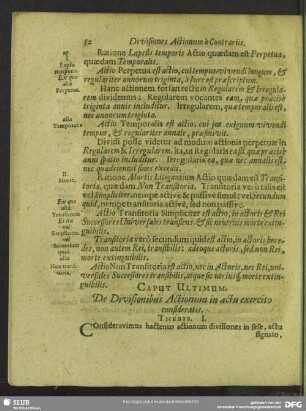 52 Divisiones Actionum à Contrariis.
Ratione Lapsûs temporis Actio quædam est Perpetua,
quædam Temporalis.
Actio Perpetua est actio, cui tempus vivendi longum, &
regulariter annorum triginta, à jure est præscriptum.
Hanc actionem forsan rectè in Regularem & Irregula-
rem dividemus: Regularem vocantes eam, quæ præcisè
triginta annis includitur. Irregularem, quæ temporalis est,
nec annorum triginta.
Actio Temporalis est actio, cui jus exiguum vivendi
tempus, & regulariter annale, præfinivit.
Dividi posse videtur ad modum actionis perpetuæ in
Regularem & Irregularem. Ita, ut Regularis ea sit, quæ præcisè
anni spatio includitur. Irregularis ea, quæ nec annalis est,
nec quadriennii fines excedit.
Ratione Mortis Litigantium Actio quædam est Transi-
toria, quædam Non Transitoria. Transitoria verò talis est
vel Simpliciter, nempe activè & passivè simul: vel Secundum
quid, nempe vel transitoria activè, sed non passivè.
Actio Transitoria Simpliciter est actio, in actoris & Rei
Successores Universales transiens, & sic neutrius morte extin-
guibilis.
Transitoria verò secundùm quid est actio, in actoris here-
des, non autem Rei, transibilis, adeoque actoris, sed non Rei,
morte extinguibilis.
Actio Non Transitoria est actio, nec in Actoris, nec Rei, uni-
versales Successores transibilis, atque sic utriusque morte extin-
guibilis.
CAPUT ULTIMUM.
De Divisionibus Actionum in actu exercito
consideratis.
THESIS. I.
Consideravimus hactenus actionum divisiones in sese, actu
signato,
10.
Perpetua.
alia
Temporalis
11.
Morte,
SLUB